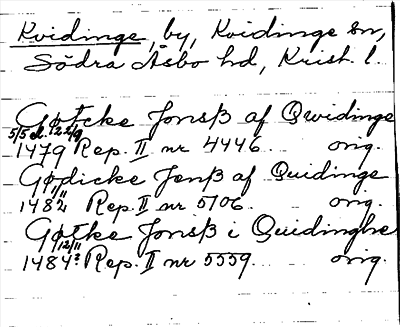 Kvidinge, by, Kvidinge sn,
Södra Åsbo hd, Krist. l.
Gøtcke Jonsß af Qwidinge
5/5 el. 22/9
1479 Rep. II nr 4446. orig.
Gødicke Jenß af Quidinge
1/11
1482 Rep. II nr 5106. orig.
Gøtke Jonsß i Quidinghe
12/11
1484? Rep. II nr 5559. orig.